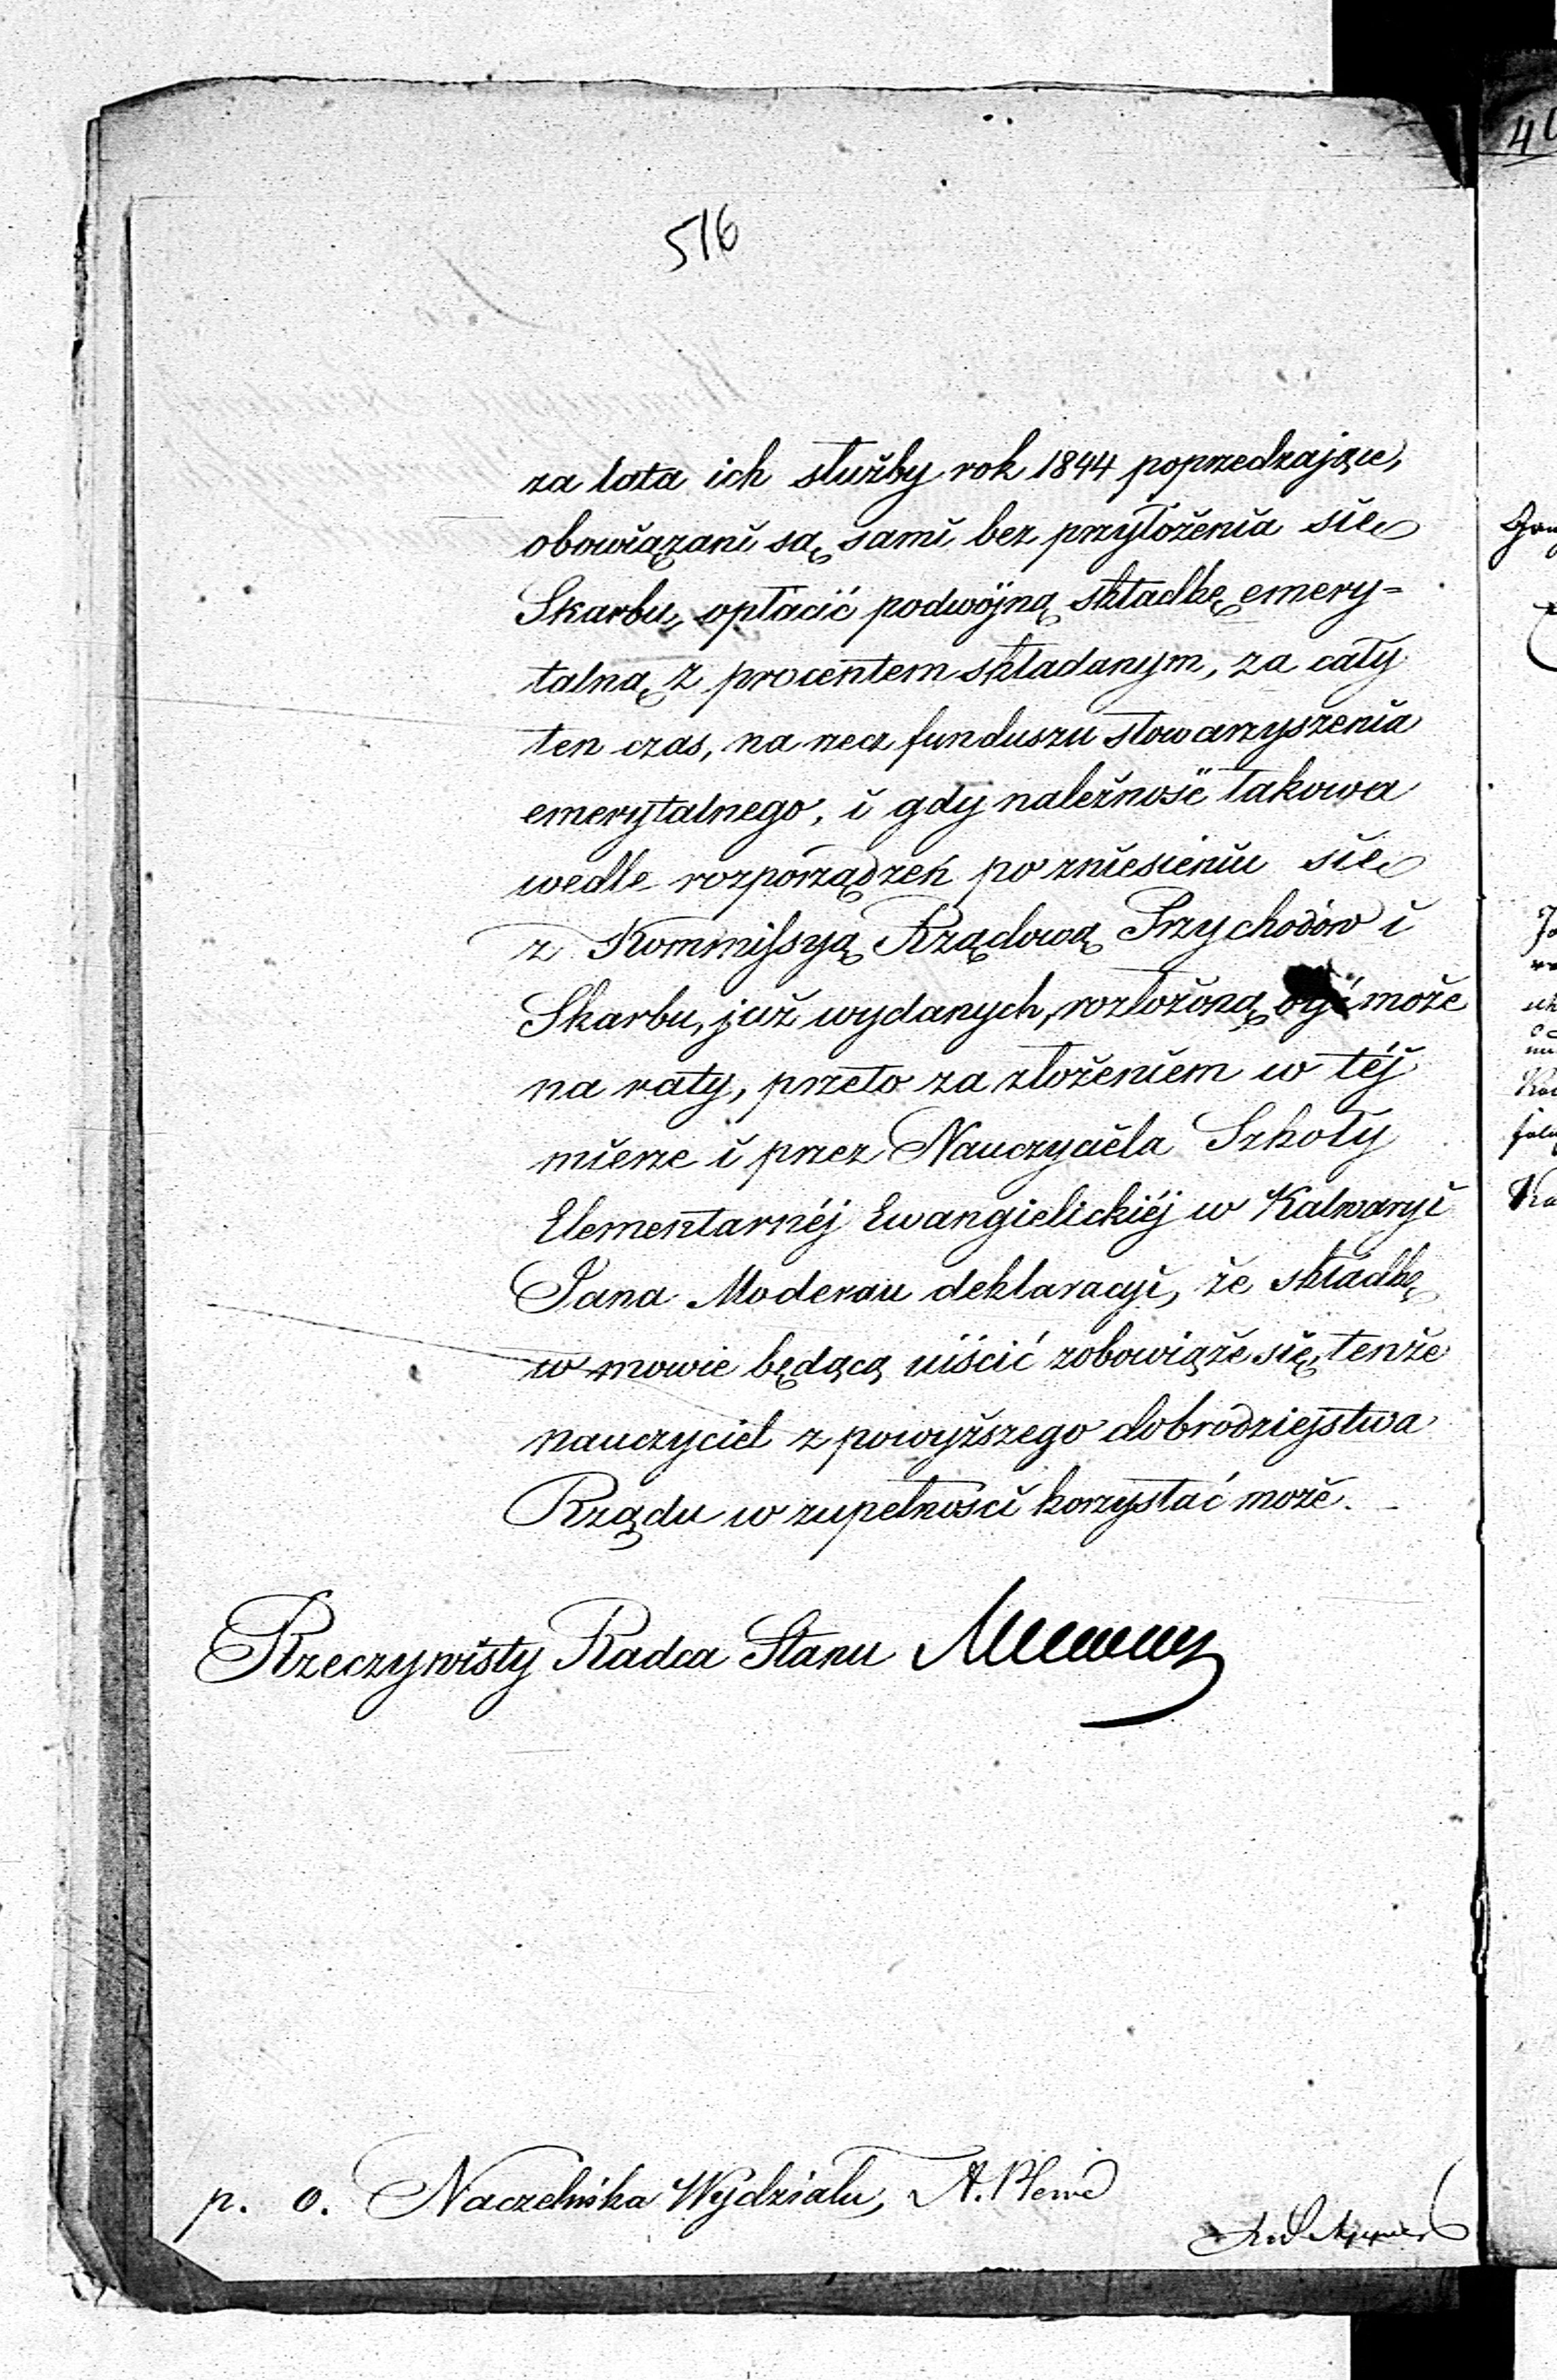 516
za lata ich służby rok 1844 poprzedzające,
obowiązani są sami bez przyłożenia się
Skarbu, opłacić podwójną składkę emery=
talną z procentem składanym, za cały
ten czas, na rzecz funduszu stowarzyszenia
emerytalnego, i gdy należność takowa
wedle rozporządzeń po zniesieniu się
z Kommissyą Rządową Przychodów i
Skarbu, już wydanych, rozłożoną być może
na raty, przeto za złożeniem w téj
mierze i przez Nauczyciela Szkoły
Elementarnéj Ewangielickiéj w Kalwaryi
Jana Moderau deklaracyi, że składkę
w mowie będącą uiścić zobowiąże się, tenże
nauczyciel z powyższego dobrodziejstwa
Rządu w zupełności korzystać może.
Rzeczywisty Radca Stanu
p. o. Naczelnika Wydziału,